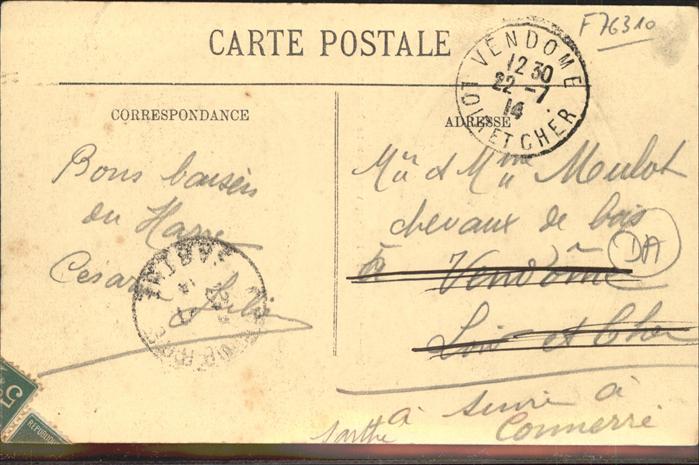 F76310
CARTE POSTALE
VENDOME
12 30
22 - 7
14
LOIR ET CHER
CORRESPONDANCE
ADRESSE
Bons baisers
du Havre
César
Mr et Mme Meulot
chevaux de bois
Vendôme
Loir et Cher
DA
à suivre à
Connerré
Sarthe
SARTHE
5